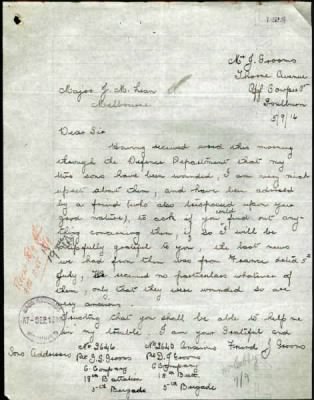 Mr J. Grooms
Thorne Avenue
Off Cowper St
Goulburn
5/9/16
Major J. M. Lean
Melbourne
Dear Sir
Having received word this morning
through the Defence Department that my
two sons have been wounded, I am very much
upset about them, and have been advised
by a friend (who also imposed upon you
good natured), to ask if you could find out any-
thing concerning them, if so I will be
hopefully grateful to you, the last news
we had from them was from France dated 5th
July, We received no particulars whatever of
them, only that they were wounded so are
very anxious.
Trusting that you shall be able to help me
in my trouble. I am your Grateful and
Anxious Friend J Grooms
Sons Addresses
No 2646
Pte J. S. Grooms
C Company
18th Battalion
5th Brigade
No 2645
Pte D. J Grooms
C Company
18th Batt
5th Brigade
7/9